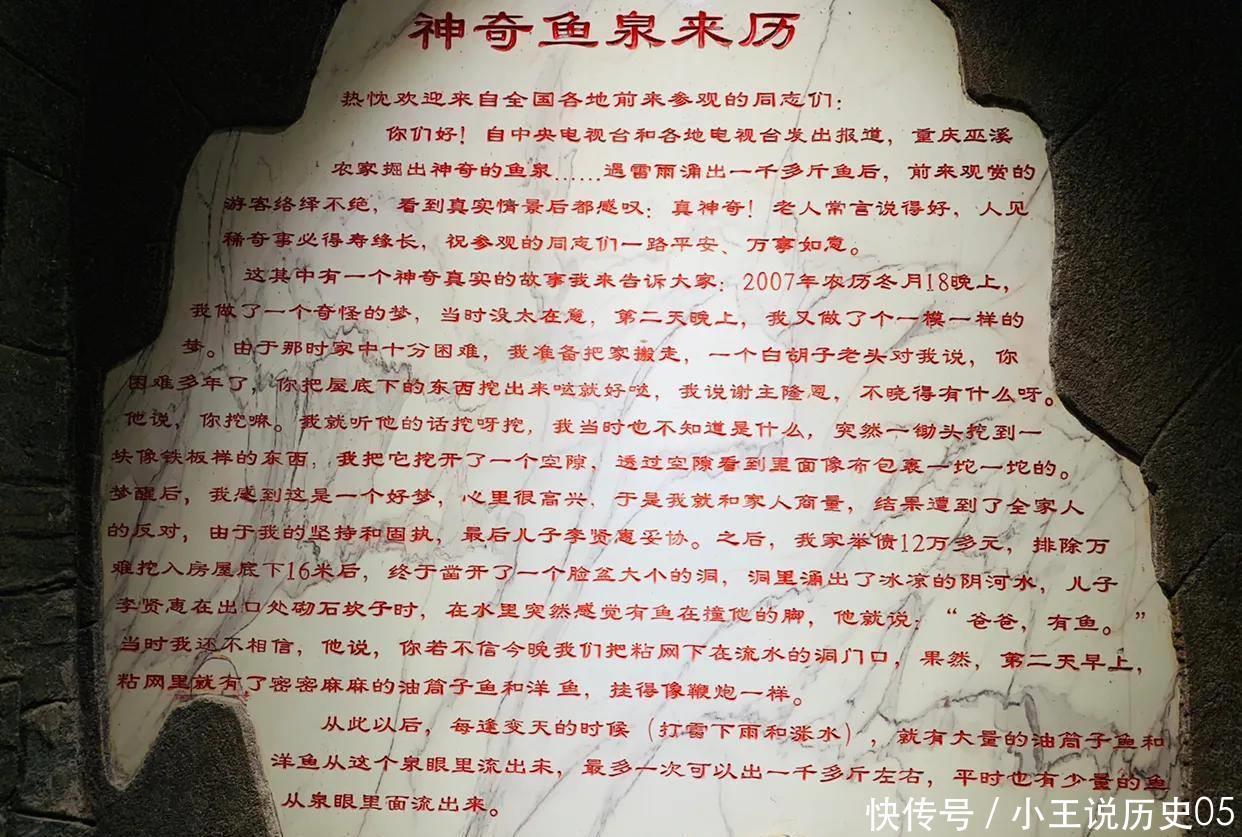 神奇鱼泉来历
热忱欢迎来自全国各地前来参观的同志们：
你们好！自中央电视台和各地电视台发出报道，重庆巫溪
农家掘出神奇的鱼泉……遇雷雨涌出一千多斤鱼后，前来观赏的
游客络绎不绝，看到真实情景后都感叹：真神奇！老人常言说得好，人见
稀奇事必得寿缘长，祝参观的同志们一路平安、万事如意。
这其中有一个神奇真实的故事我来告诉大家：2007年农历冬月18晚上，
我做了一个奇怪的梦，当时没太在意，第二天晚上，我又做了个一模一样的
梦。由于那时家中十分困难，我准备把家搬走，一个白胡子老头对我说，你
困难多年了，你把屋底下的东西挖出来哒就好哒，我说谢主隆恩，不晓得有什么呀。
他说，你挖嘛。我就听他的话挖呀挖，我当时也不知道是什么，突然一锄头挖到一
块像铁板样的东西，我把它挖开了一个空隙，透过空隙看到里面像布包裹一坨一坨的。
梦醒后，我感到这是一个好梦，心里很高兴，于是我就和家人商量，结果遭到了全家人
的反对，由于我的坚持和固执，最后儿子李贤惠妥协。之后，我家举债12万多元，排除万
难挖入房屋底下16米后，终于凿开了一个脸盆大小的洞，洞里涌出了冰凉的阴河水，儿子
李贤惠在出口处砌石坎子时，在水里突然感觉有鱼在撞他的脚，他就说：“爸爸，有鱼。”
当时我还不相信，他说，你若不信今晚我们把粘网下在流水的洞门口，果然，第二天早上，
粘网里就有了密密麻麻的油筒子鱼和洋鱼，挂得像鞭炮一样。
从此以后，每逢变天的时候（打雷下雨和涨水），就有大量的油筒子鱼和
洋鱼从这个泉眼里流出来，最多一次可以出一千多斤左右，平时也有少量的鱼
从泉眼里面流出来。
快传号 / 小王说历史05